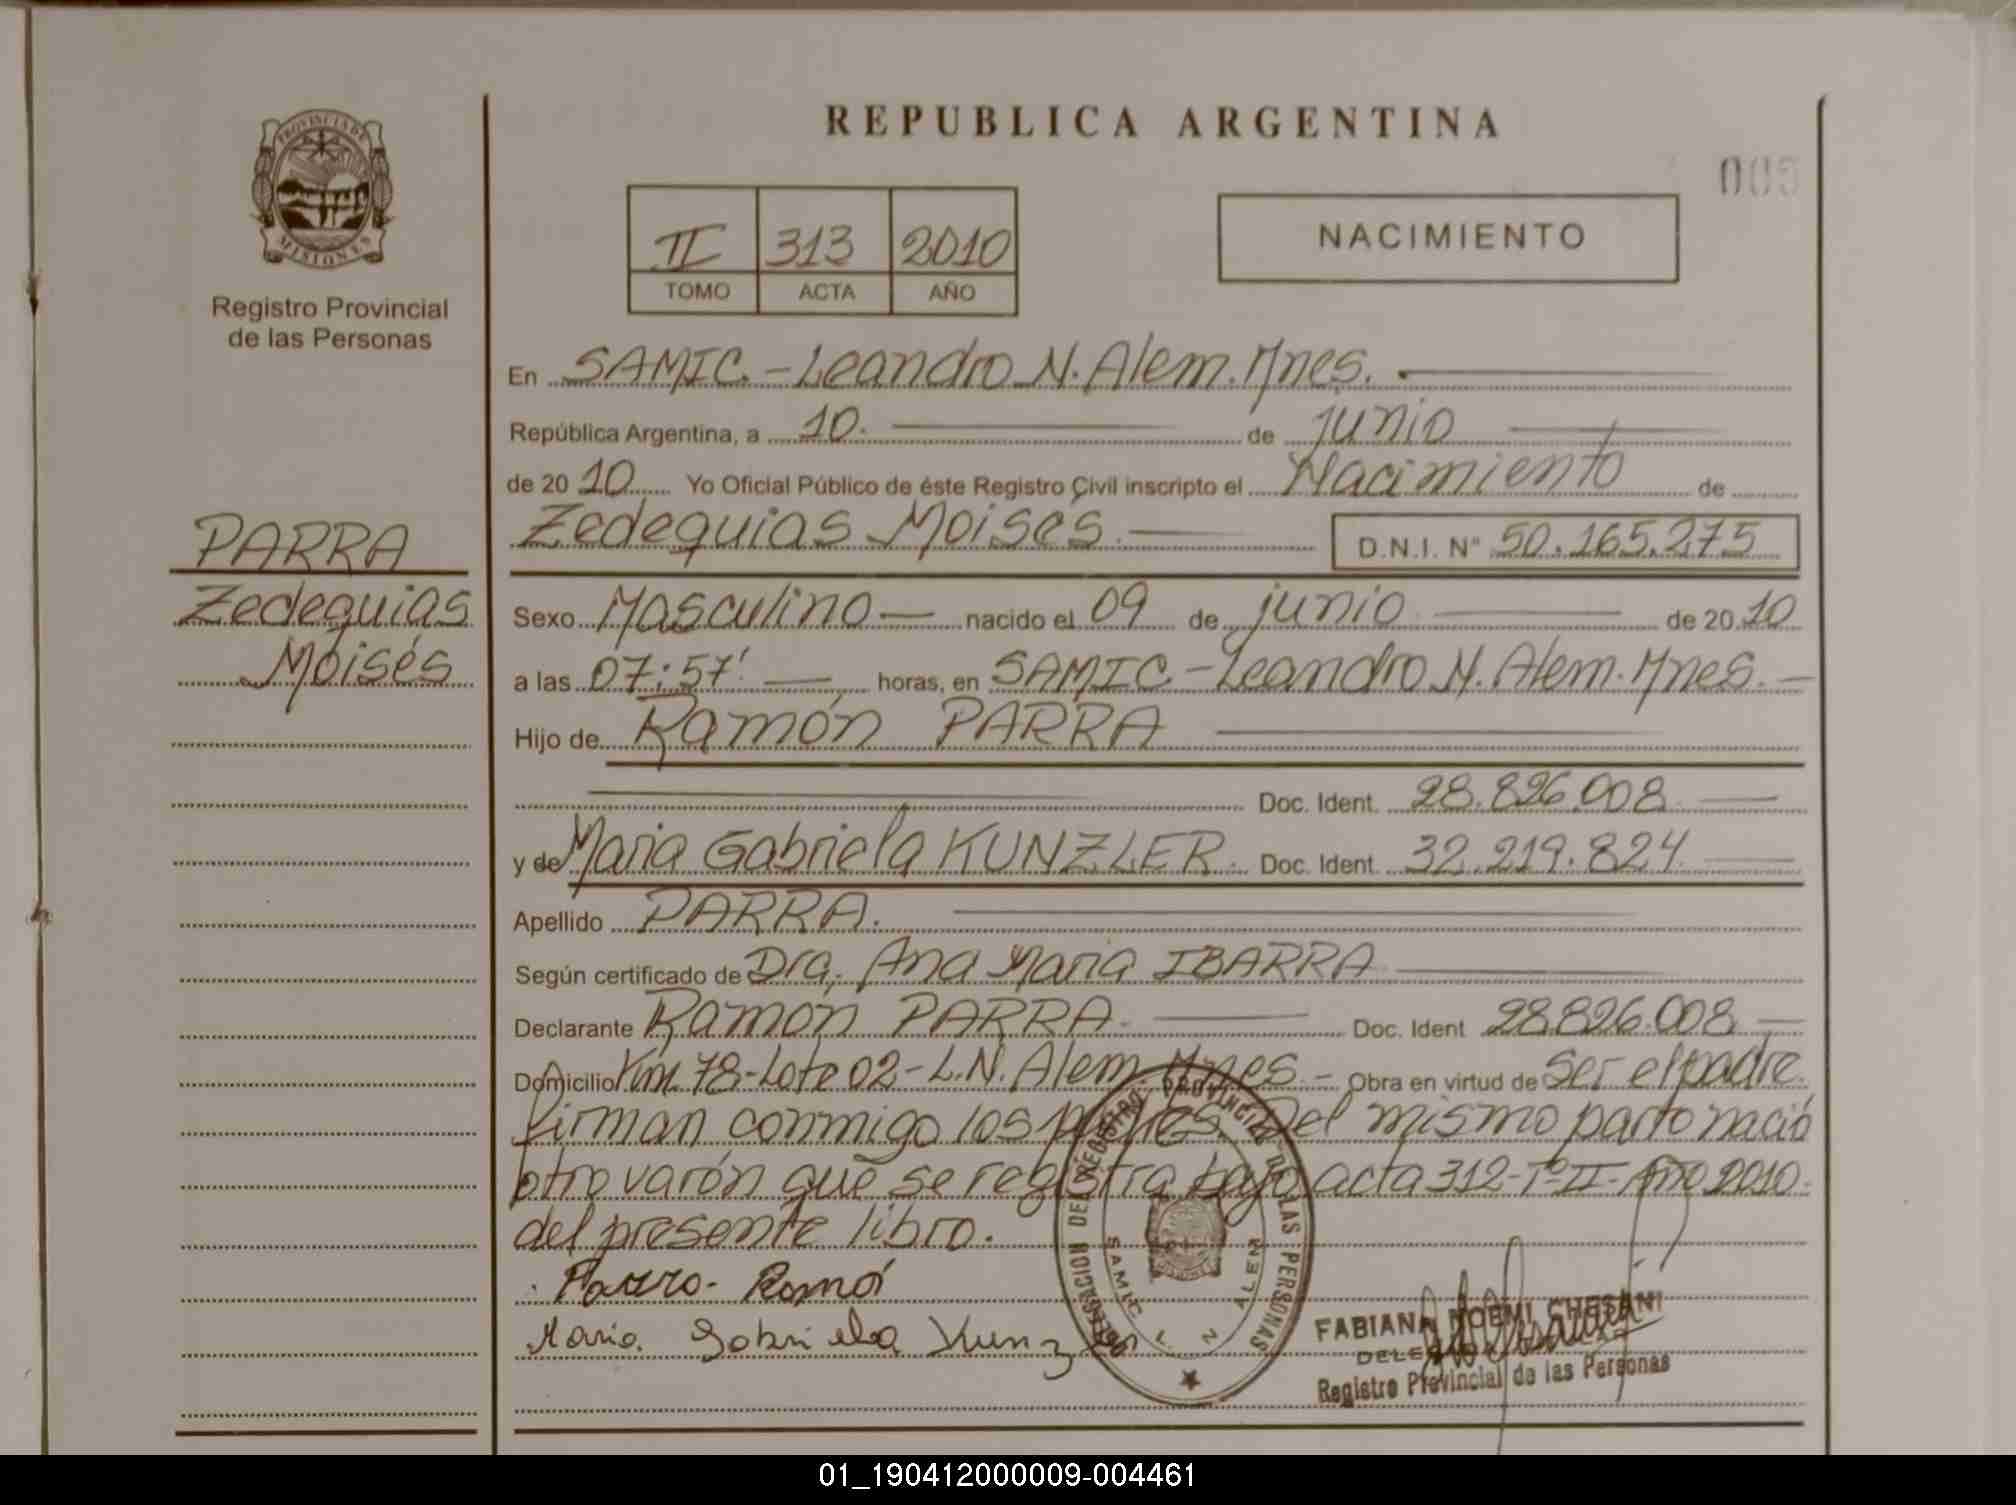 REPUBLICA ARGENTINA
005
PROVINCIA DE
MISIONES
Registro Provincial
de las Personas
II 313 2010
TOMO ACTA AÑO
NACIMIENTO
En SAMIC.-Leandro N. Alem. Mnes.
República Argentina, a 10. de junio
de 20 10 Yo Oficial Público de éste Registro Civil inscripto el Nacimiento de
PARRA
Zedequias Moisés
Zedequias Moisés D.N.I. N° 50.165.275
Sexo Masculino nacido el 09 de junio de 20 10
a las 07:57' horas, en SAMIC-Leandro N. Alem. Mnes.-
Hijo de Ramón PARRA
Doc. Ident. 28.826.008
y de Maria Gabriela KUNZLER. Doc. Ident. 32.219.824
Apellido PARRA.
Según certificado de Dra. Ana Maria IBARRA
Declarante Ramón PARRA Doc. Ident 28.826.008
Domicilio Km. 78-Lote 02-L.N. Alem. Mnes.- Obra en virtud de Ser el padre.
firman conmigo los padres. Del mismo parto nació
otro varón que se registra bajo acta 312-T°II-Año 2010.
del presente libro.
Parra- Ramó
Maria. Gabriela Kunzler
DELEGACION DEL REGISTRO PROVINCIAL DE LAS PERSONAS
SAMIC L. N ALEM
FABIANA NOEMI CHESANI
DELEGADO
Registro Provincial de las Personas
01_190412000009-004461